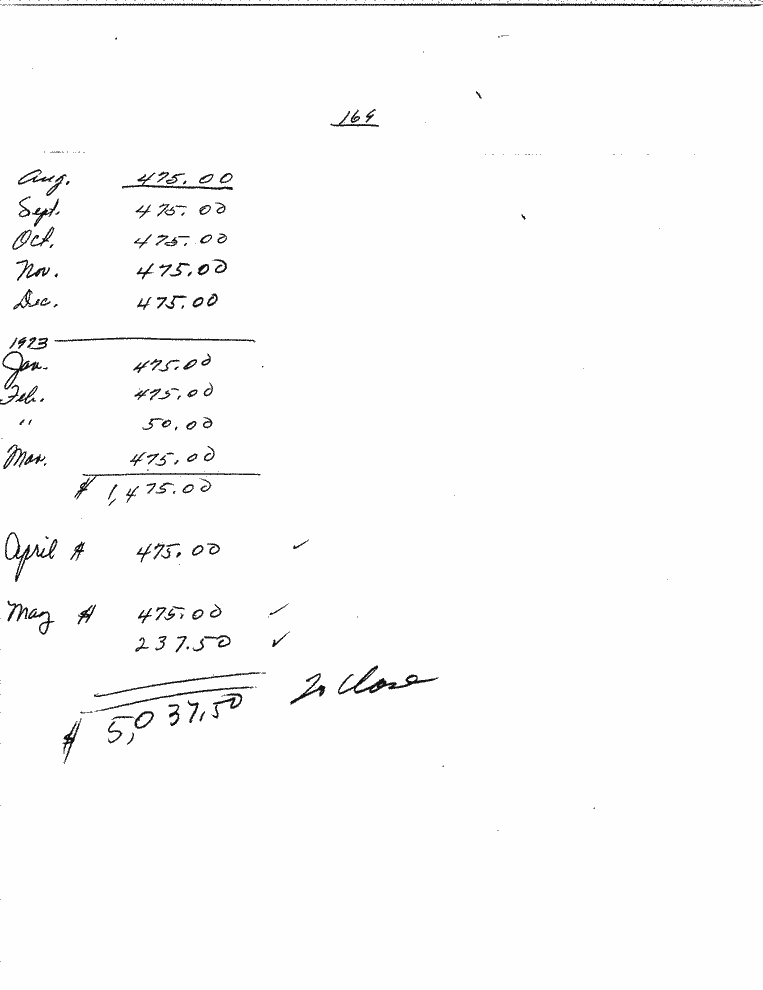 169
Aug. 475.00
Sept. 475.00
Oct. 475.00
Nov. 475.00
Dec. 475.00
1973
Jan. 475.00
Feb. 475.00
" 50.00
Mar. 475.00
$ 1,475.00
April $ 475.00 ✓
May $ 475.00 ✓
237.50 ✓
$ 5,037.50 To Close